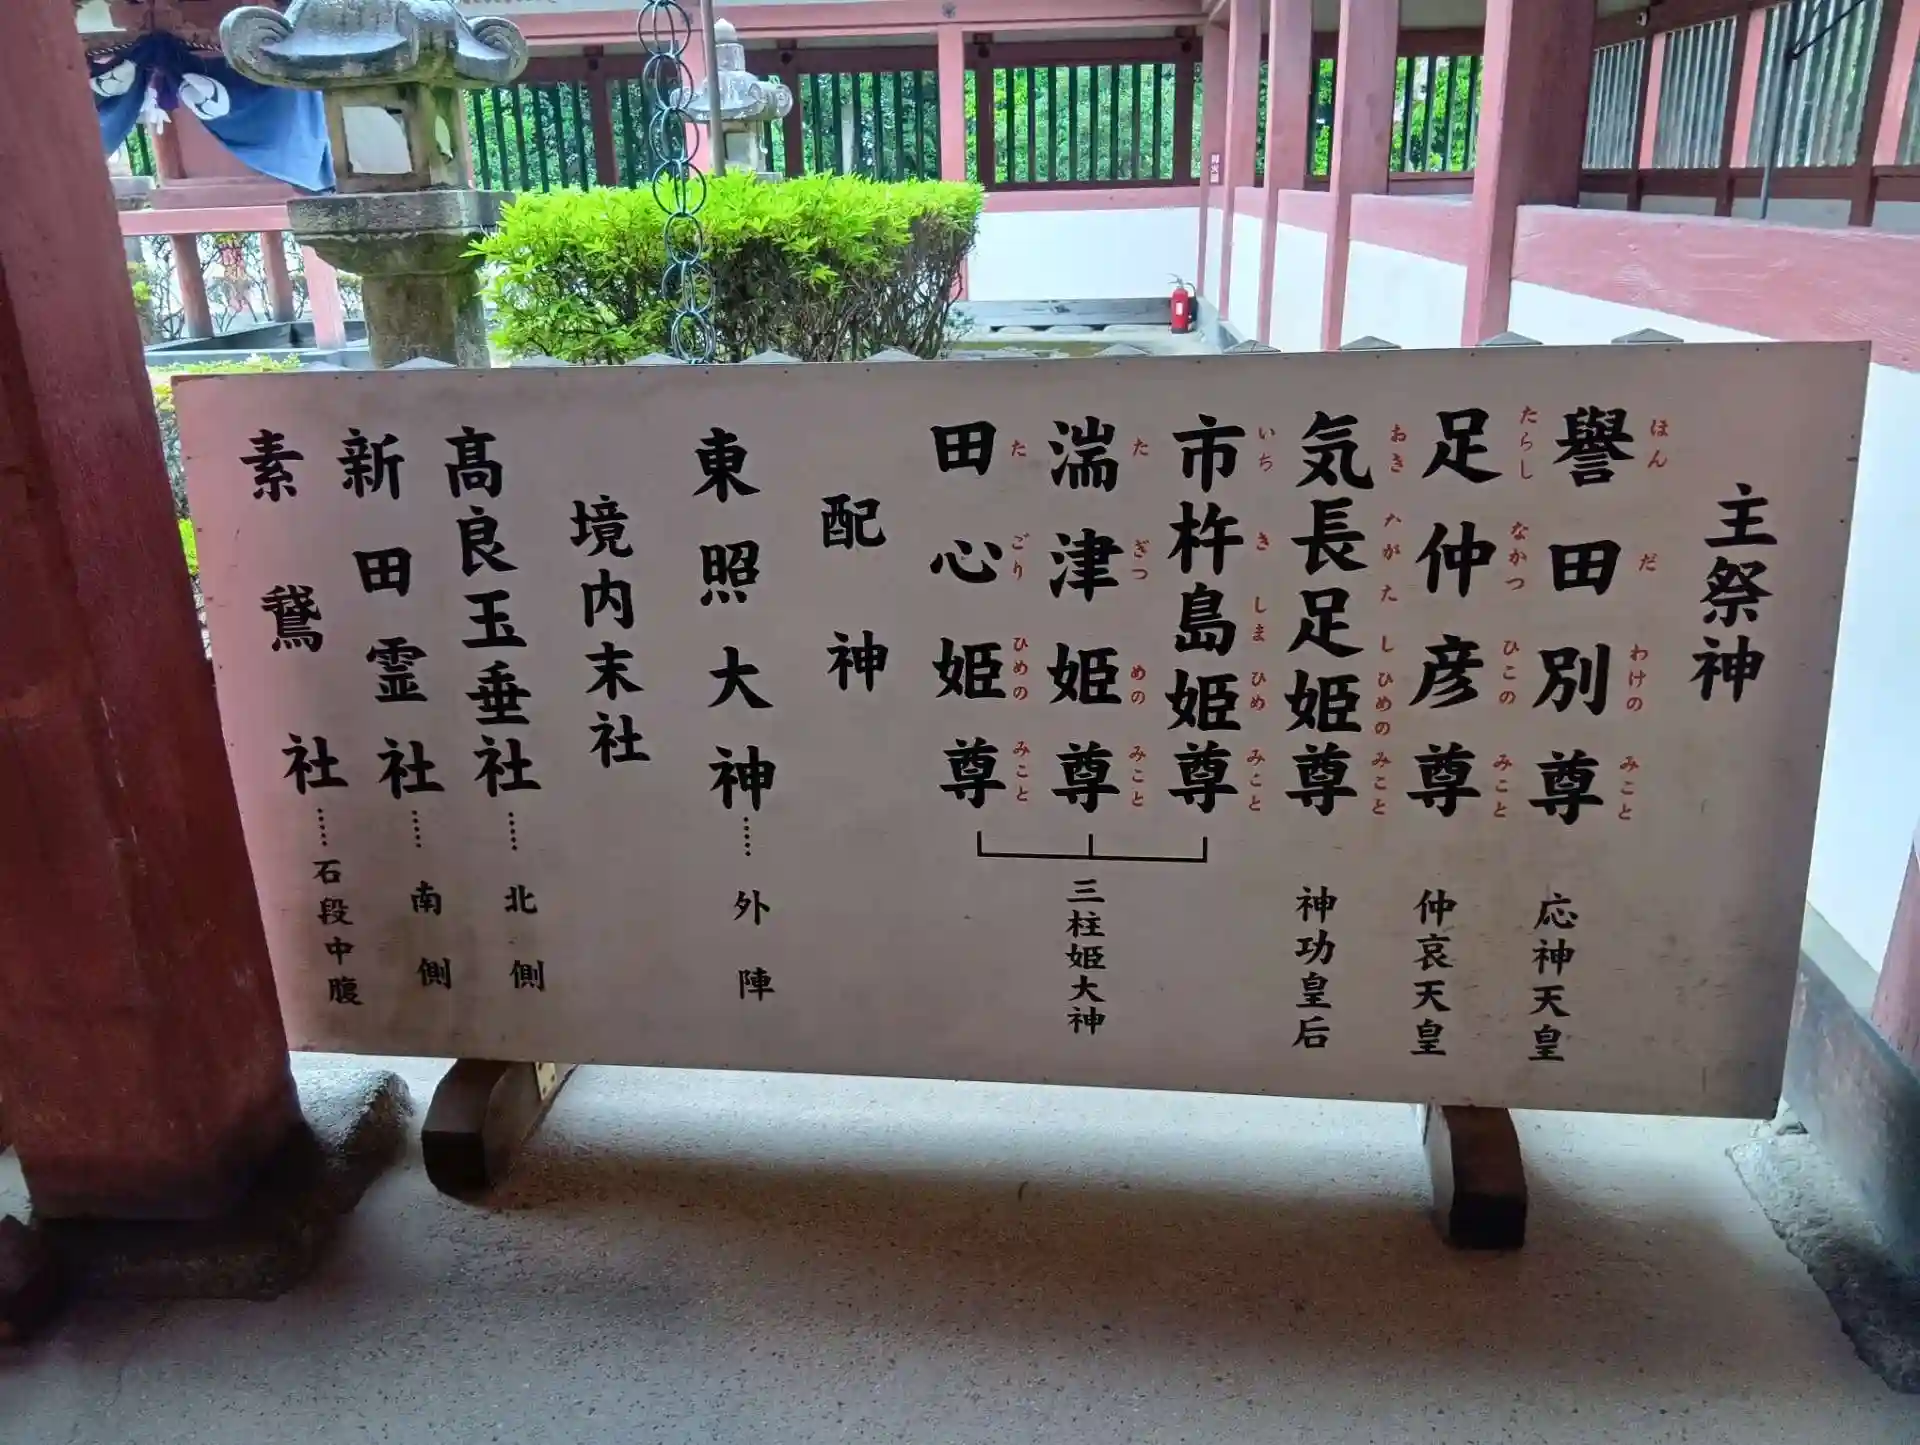 主祭神
譽田別尊 応神天皇
ほんだわけのみこと
足仲彦尊 仲哀天皇
たらしなかつひこのみこと
気長足姫尊 神功皇后
おきながたしひめのみこと
市杵島姫尊
いちきしまひめみこと
湍津姫尊
たぎつめのみこと
田心姫尊
たごりひめのみこと
三柱姫大神
配神
東照大神……外陣
境内末社
髙良玉垂社……北側
新田霊社……南側
素鵞社……石段中腹